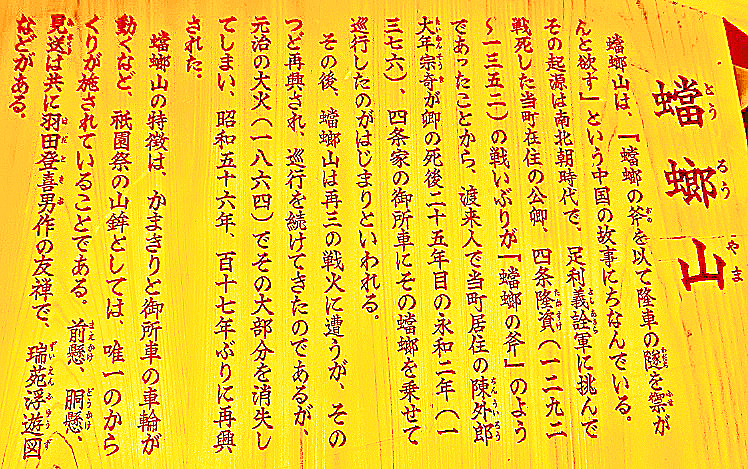 蟷螂山
とうろうやま
蟷螂山は、「蟷螂の斧を以て隆車の隧を禦が
んと欲す」という中国の故事にちなんでいる。
その起源は南北朝時代で、足利義詮軍に挑んで
戦死した当町在住の公卿、四条隆資（一二九二
～一三五二）の戦いぶりが「蟷螂の斧」のよう
であったことから、渡来人で当町居住の陳外郎
大年宗奇が卿の死後二十五年目の永和二年（一
三七六）、四条家の御所車にその蟷螂を乗せて
巡行したのがはじまりといわれる。
その後、蟷螂山は再三の戦火に遭うが、その
つど再興され、巡行を続けてきたのであるが、
元治の大火（一八六四）でその大部分を消失し
てしまい、昭和五十六年、百十七年ぶりに再興
された。
蟷螂山の特徴は、かまきりと御所車の車輪が
動くなど、祇園祭の山鉾としては、唯一のから
くりが施されていることである。前懸、胴懸、
見送は共に羽田登喜男作の友禅で、瑞苑浮遊図
などがある。